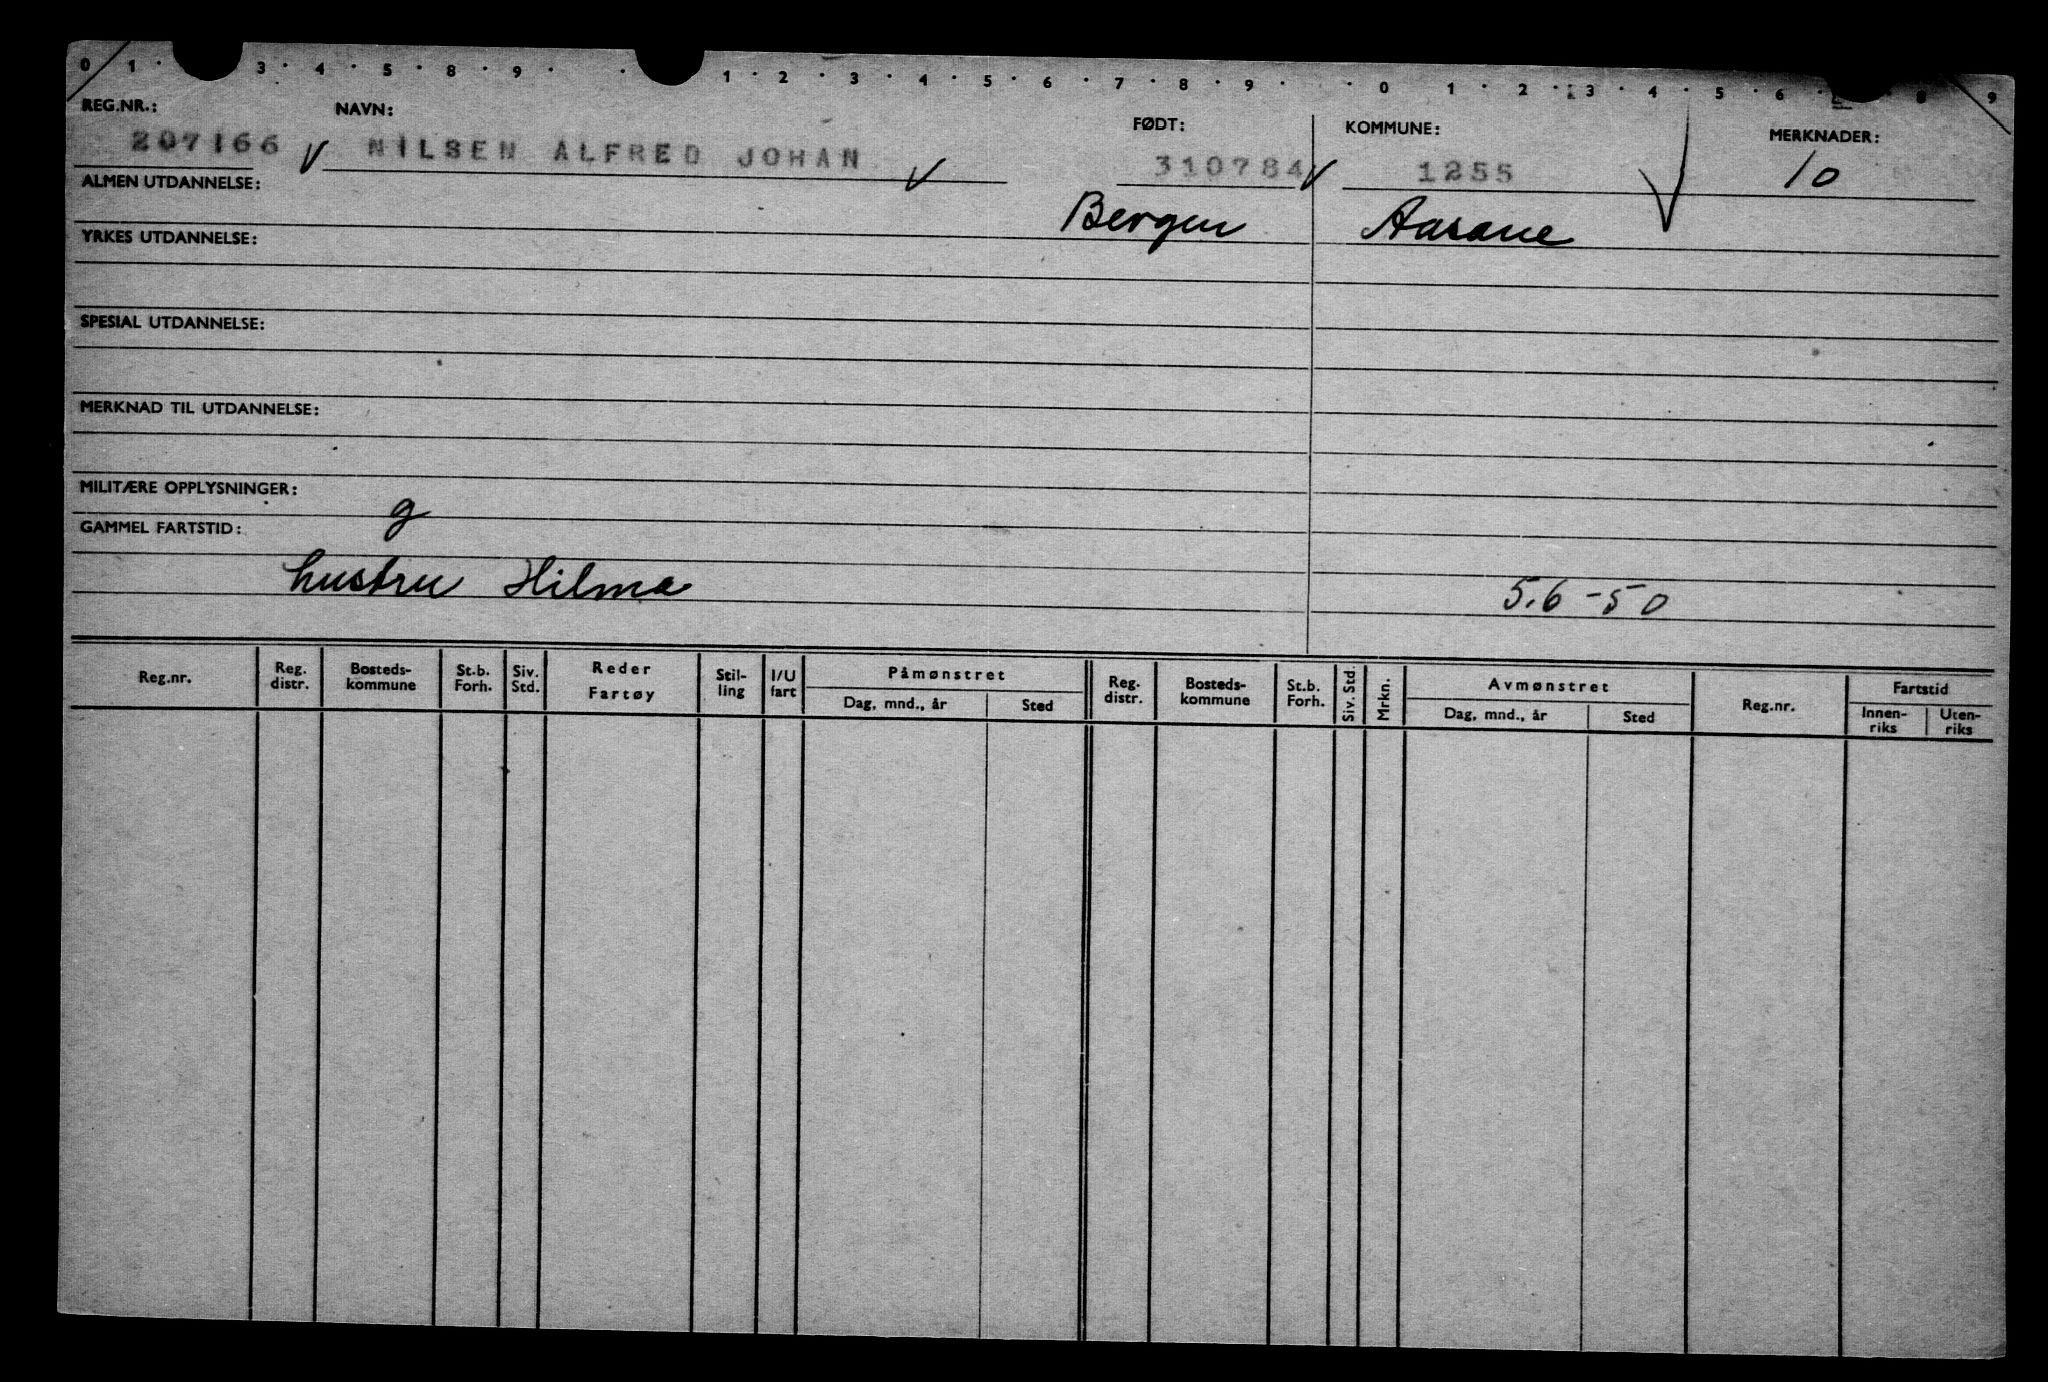 0 1 · 3 · 4 · 5 · 8 · 9 · · 1 · 2 · 3 · 4 · 5 · 6 · 7 · 8 · 9 · · 0 · 1 · 2 · 3 · 4 · 5 · 6 · 8 · 9
REG.NR.: NAVN: FØDT: KOMMUNE: MERKNADER:
207166 NILSEN ALFRED JOHAN 310784 1255 10
ALMEN UTDANNELSE:
Bergen Aasane
YRKES UTDANNELSE:
SPESIAL UTDANNELSE:
MERKNAD TIL UTDANNELSE:
MILITÆRE OPPLYSNINGER:
g
GAMMEL FARTSTID:
hustru Hilma 5.6-50
Reg.nr. Reg. distr. Bosteds-kommune St.b. Forh. Siv. Std. Reder Fartøy Stil-ling I/U fart Påmønstret Dag, mnd., år Sted Reg. distr. Bosteds-kommune St.b. Forh. Siv. Std. Mrkn. Avmønstret Dag, mnd., år Sted Reg.nr. Fartstid Innen-riks Uten-riks